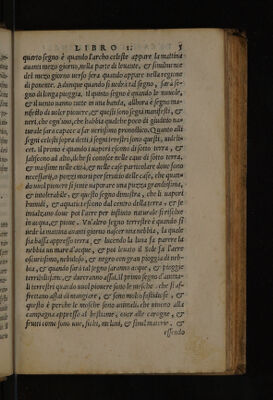 LIBRO I.
5
quarto segno è quando l'archo celeste appare la mattina
auanti mezo giorno, nella parte di leuante, & similmente
del mezo giorno uerso sera quando appare nella regione
di ponente. Adunque quando si uedrà tal segno, sarà se-
gno di longa pioggia. Il quinto è quando le nuuole,
& il uento uanno tutte in una banda, allhora è segno ma-
nifesto di uoler piouere, & questi sono segni manifesti, &
ueri, che ogn'uno, che habbia qualche poco di giuditio natu-
turale sarà capace a far uerissimo pronostico. Quanto alli
segni celesti sopra detti, i segni terrestri sono questi, uidelicet.
il primo è quando i uapori escono di sotto terra, &
ascendono ad alto, ilche si conosce nelle caue di sotto terra,
& massime nelle città, & nelle case particolare doue sono
necessarij, o pozzi morti per seruitio delle case, che quan-
do uuol piouere si sente uaporare una puzza grandissima,
& intolerabile, & questo segno dimostra, che li uapori
humidi, & aquatici escono dal centro della terra, & se
inalzano doue poi l'aere per instinto naturale si risolue
in acqua, & pioue. Un'altro segno terrestre è quando si
uede la mattina auanti giorno nascer una nebbia, la quale
stia bassa appresso terra, & lucendo la luna fa parere la
nebbia un mare d'acque, & poi leuato il Sole fa l'aere
oscurissimo, nebuloso, & negro con gran pioggia di neb-
bia, & quando sarà tal segno saranno acque, & pioggie
terribilissime, & dureranno assai. Il primo segno d'anima-
li terrestri quando uuol piouere sono le mosche, che si af-
frettano assai di mangiare, & sono molto fastidiose, &
questo è perche le mosche sono animali, che uiueno alla
campagna appresso al bestiame, ouer alle carogne, &
frutti come sono uue, fichi, meloni, & simil materie, &
essendo